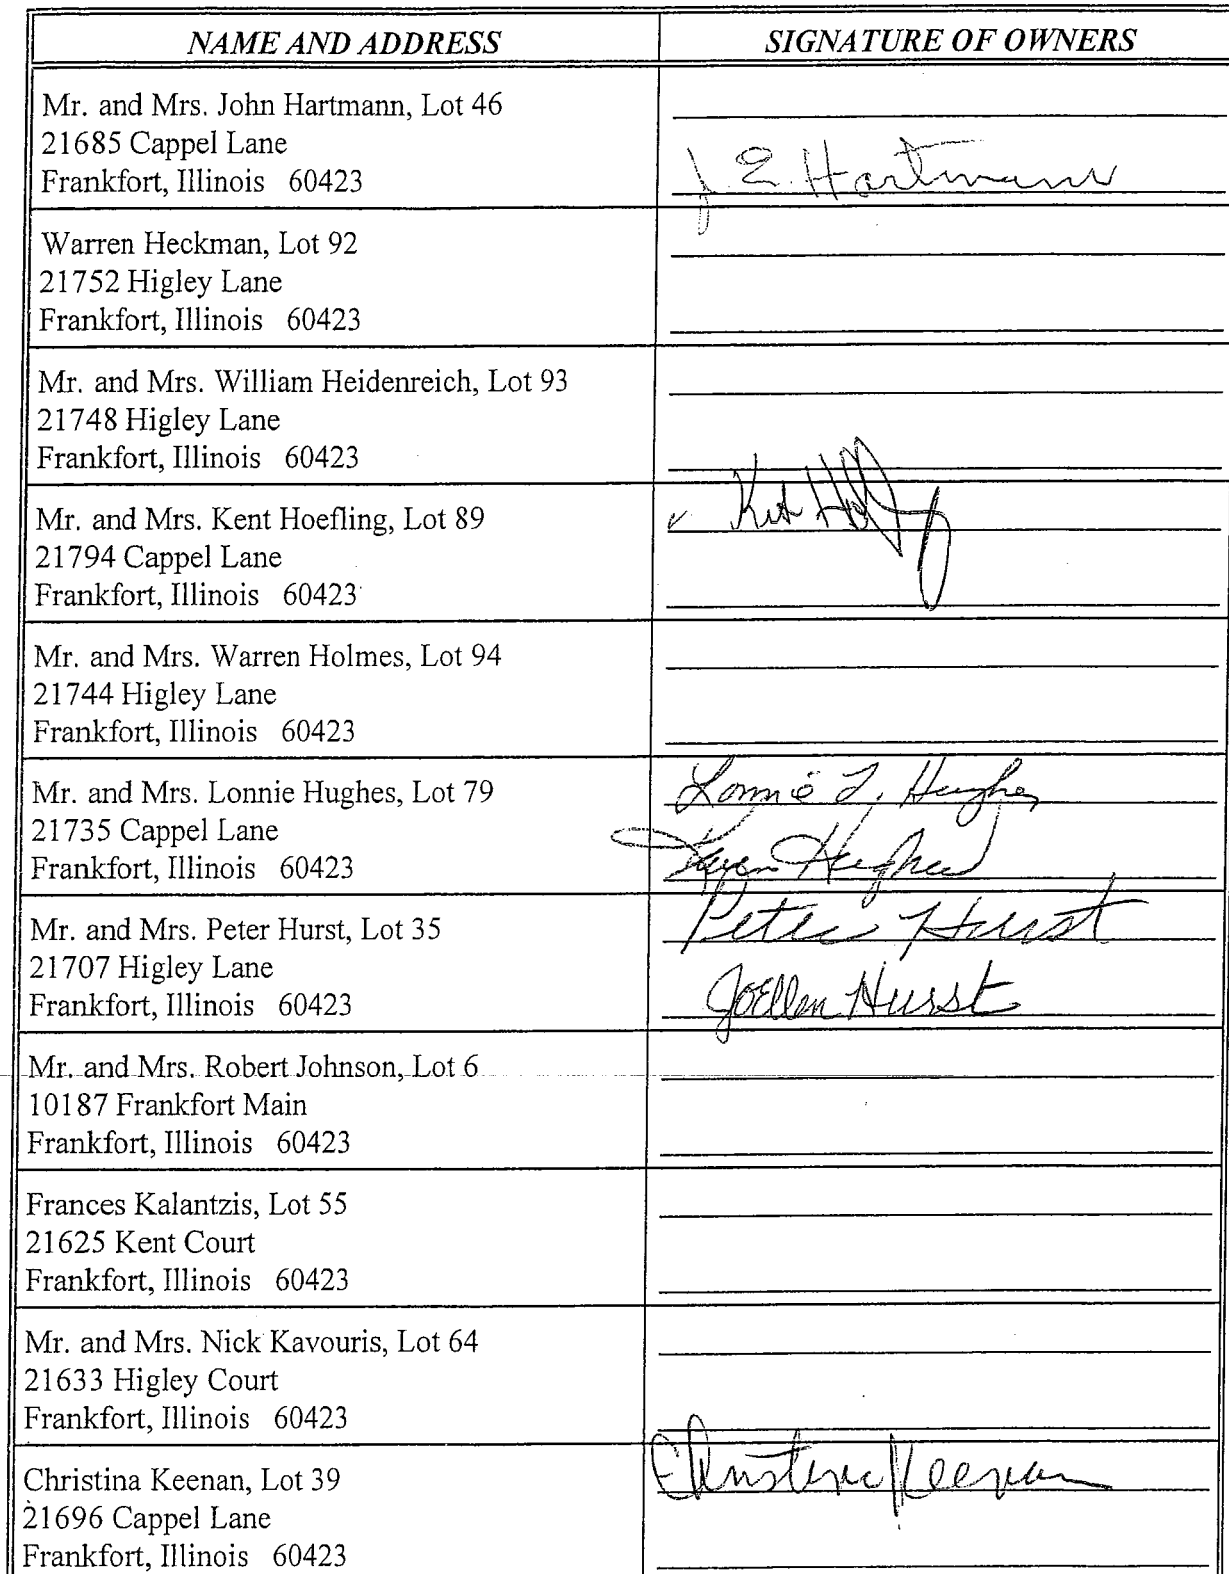 NAME AND ADDRESS SIGNATURE OF OWNERS
Mr. and Mrs. John Hartmann, Lot 46
21685 Cappel Lane
Frankfort, Illinois 60423
J. E. Hartmann
Warren Heckman, Lot 92
21752 Higley Lane
Frankfort, Illinois 60423
Mr. and Mrs. William Heidenreich, Lot 93
21748 Higley Lane
Frankfort, Illinois 60423
Mr. and Mrs. Kent Hoefling, Lot 89
21794 Cappel Lane
Frankfort, Illinois 60423
Mr. and Mrs. Warren Holmes, Lot 94
21744 Higley Lane
Frankfort, Illinois 60423
Mr. and Mrs. Lonnie Hughes, Lot 79
21735 Cappel Lane
Frankfort, Illinois 60423
Lonnie L. Hughes
Hughes
Mr. and Mrs. Peter Hurst, Lot 35
21707 Higley Lane
Frankfort, Illinois 60423
Peter Hurst
JoEllen Hurst
Mr. and Mrs. Robert Johnson, Lot 6
10187 Frankfort Main
Frankfort, Illinois 60423
Frances Kalantzis, Lot 55
21625 Kent Court
Frankfort, Illinois 60423
Mr. and Mrs. Nick Kavouris, Lot 64
21633 Higley Court
Frankfort, Illinois 60423
Christina Keenan, Lot 39
21696 Cappel Lane
Frankfort, Illinois 60423
Christina Keenan